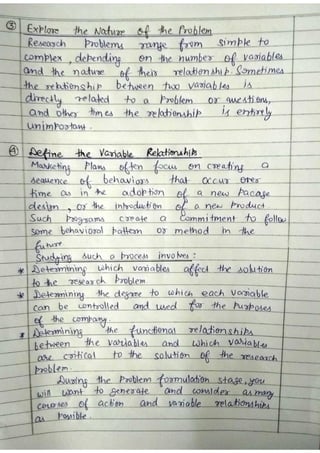 ③ Explore the Nature of the Problem
Research Problems range from simple to
complex, depending on the number of variables
and the nature of their relationship. Sometimes
the relationship between two variables is
directly related to a Problem or questions,
and other times the relationship is entirely
unimportant.
④ Define the Variable Relationship
Marketing Plans often focus on creating a
sequence of behaviors that occur over
time as in the adoption of a new Pacage
design, or the introduction of a new Product.
Such Programs create a Commitment to follow
some behavioral pattern or method in the
future
Studying such a process involves:
* Determining which variables affect the solution
to the research Problem
* Determining the degree to which each variable
can be controlled and used for the Purposes
of the company.
* Determining the functional relationships
between the variables and which variables
are critical to the solution of the research
Problem.
During the Problem formulation stage, you
will want to generate and consider as many
courses of action and variable relationships
as Possible.